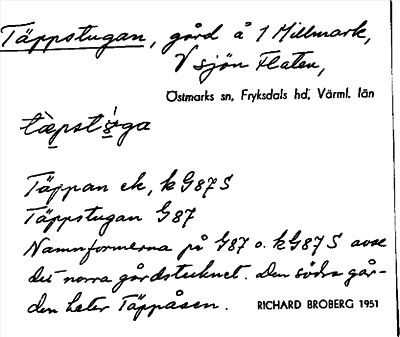 Täppstugan, gård å 1 Millmark,
V sjön Flaten,
Östmarks sn, Fryksdals hd, Värml. län
tæpstöga
Täppan ek, k G87 S
Täppstugan G87
Namnformerna på G87 o. k G87 S avse
det norra gårdstecknet. Den södra går-
den heter Täppåsen. RICHARD BROBERG 1951